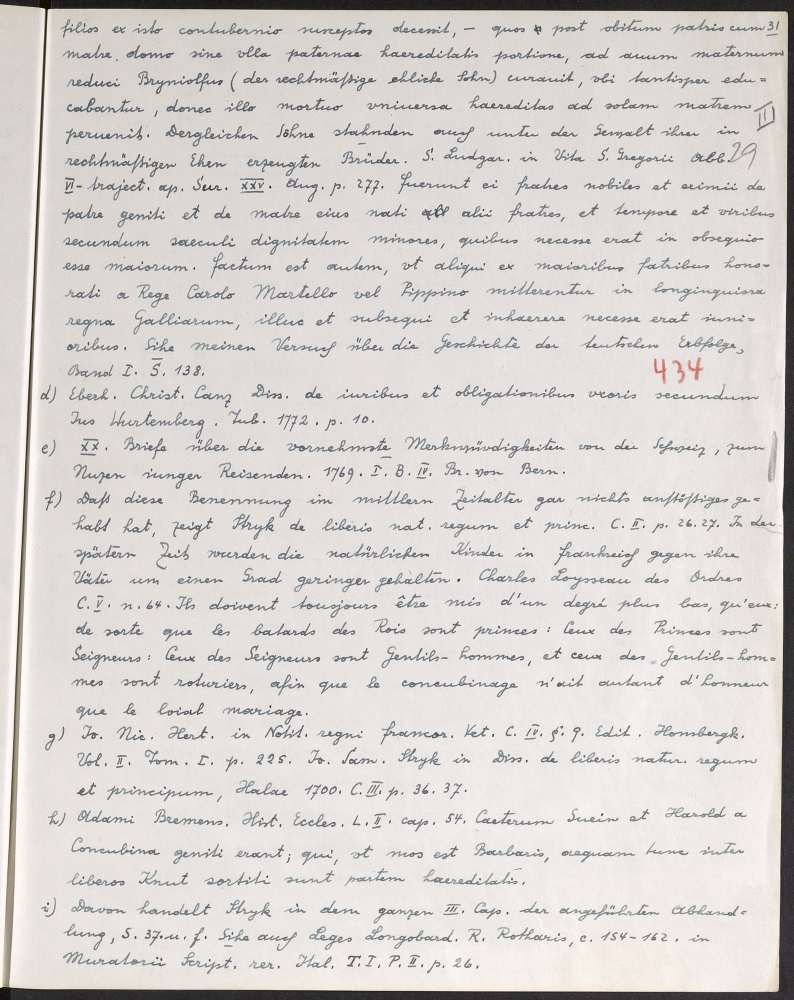 filios ex isto contubernio susceptos decessit, – quos post obitum patris cum 31
matre, domo sine vlla paternae haereditatis portione, ad auum maternum
reduci Bryniolfus (der rechtmäßige ehliche Sohn) curauit, vbi tantisper edu=
cabantur, donec illo mortuo vniuersa haereditas ad solam matrem
peruenit. Dergleichen Söhne stahnden auch unter der Gewalt ihrer in II
rechtmäßigen Ehen erzeugten Brüder. S. Ludgar. in Vita S. Gregorii Abb. 29
VI-traject. ap. Sur. XXV. Aug. p. 277. fuerunt ei fratres nobiles et eximii de
patre geniti et de matre eius nati alii fratres, et tempore et viribus
secundum saeculi dignitatem minores, quibus necesse erat in obsequio
esse maiorum. factum est autem, vt aliqui ex maioribus fatribus hono=
rati a Rege Carolo Martello vel Pippino mitterentur in longinquiora
regna Galliarum, illuc et subsequi et inhaerere necesse erat iuni=
oribus. Sihe meinen Versuch über die Geschichte der teutschen Erbfolge,
Band I. S. 138.
434
d) Eberh. Christ. Canz Diss. de iuribus et obligationibus vxoris secundum
Ius Wurtemberg. Tub. 1772. p. 10.
e) XX. Briefe über die vornehmste Merkwürdigkeiten von der Schweiz, zum
Nuzen iunger Reisenden. 1769. I. B. IV. Br. von Bern.
f) Daß diese Benennung im mittlern Zeitalter gar nichts anstößiges ge=
habt hat, zeigt Stryk de liberis nat. regum et princ. C. II. p. 26. 27. In der
spätern Zeit wurden die natürlichen Kinder in Frankreich gegen ihre
Väter um einen Grad geringer gehalten. Charles Loysseau des Ordres
C. V. n. 64. Ils doivent tousjours être mis d'un degré plus bas, qu'eux:
de sorte que les batards des Rois sont princes: Ceux des Princes sont
Seigneurs: Ceux des Seigneurs sont Gentils-hommes, et ceux des Gentils-hom=
mes sont roturiers, afin que le concubinage n'ait autant d'honneur
que le loial mariage.
g) Io. Nic. Hert. in Notit. regni francor. Vet. C. IV. §. 9. Edit. Hombergk.
Vol. II. Tom. I. p. 225. Io. Sam. Stryk in Diss. de liberis natur. regum
et principum, Halae 1700. C. III. p. 36. 37.
h) Adami Bremens. Hist. Eccles. L. II. cap. 54. Caeterum Suein et Harold a
Concubina geniti erant; qui, vt mos est Barbaris, aequam tunc inter
liberos Knut sortiti sunt partem haereditatis.
i) Davon handelt Stryk in dem ganzen III. Cap. der angeführten Abhand=
lung, S. 37. u. f. Sihe auch Leges Longobard. R. Rotharis, c. 154-162. in
Muratorii Script. rer. Ital. T. I. P. II. p. 26.